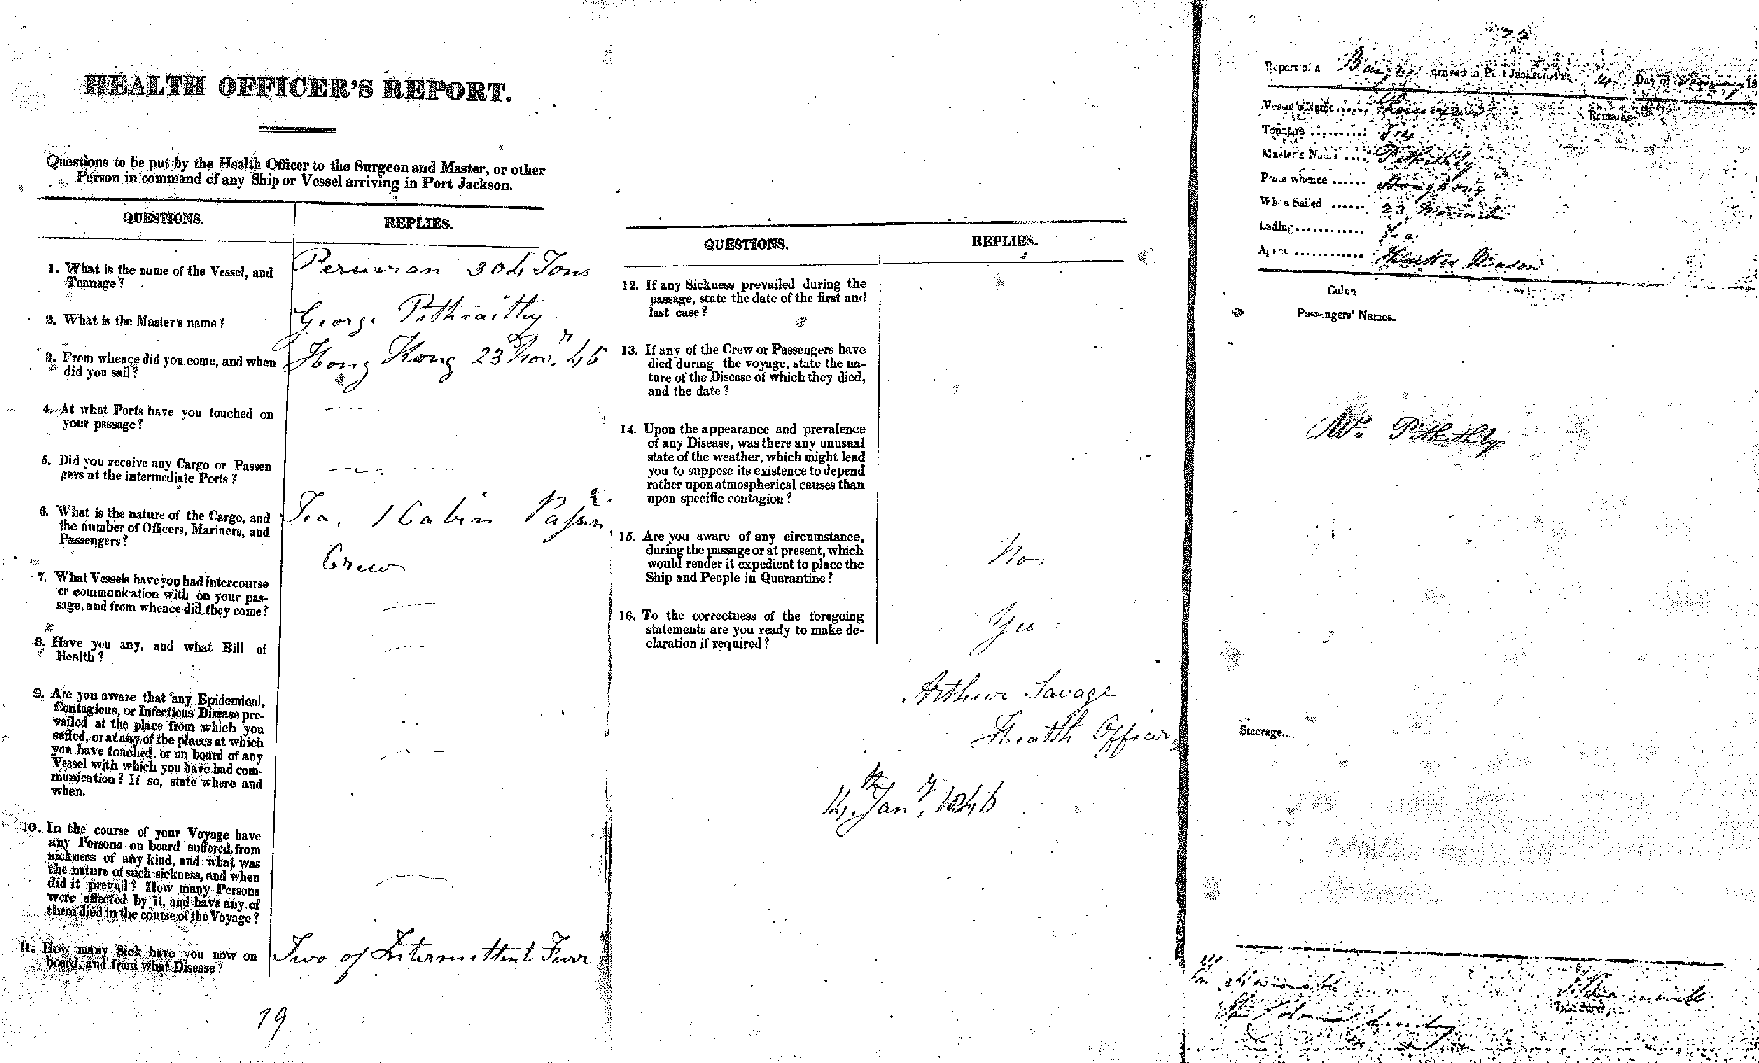 HEALTH OFFICER'S REPORT.
Questions to be put by the Health Officer to the Surgeon and Master, or other
Person in command of any Ship or Vessel arriving in Port Jackson.
QUESTIONS. REPLIES.
1. What is the name of the Vessel, and Peruvian 304 Tons
Tonnage?
2. What is the Master's name? George Pithkeithly
3. From whence did you come, and when Hong Kong 23 Novr. 45
did you sail?
4. At what Ports have you touched on
your passage?
5. Did you receive any Cargo or Passen
gers at the intermediate Ports?
6. What is the nature of the Cargo, and Tea, 1 Cabin
the number of Officers, Mariners, and
Passengers? Crew
7. What Vessels have you had intercourse
or communication with on your pas-
sage, and from whence did they come?
8. Have you any, and what Bill of
Health?
9. Are you aware that any Epidemical,
Contagious, or Infectious Disease pre-
vailed at the place from which you
sailed, or at any of the places at which
you have touched, or on board of any
Vessel with which you have had com-
munication? If so, state where and
when.
10. In the course of your Voyage have
any Persons on board suffered from
sickness of any kind, and what was
the nature of such sickness, and when
did it prevail? How many Persons
were affected by it, and have any of
them died in the course of the Voyage?
11. How many Sick have you now on Two of Intermittent Fever
board, and from what Disease?
19
QUESTIONS. REPLIES.
12. If any Sickness prevailed during the
passage, state the date of the first and
last case?
13. If any of the Crew or Passengers have
died during the voyage, state the na-
ture of the Disease of which they died,
and the date?
14. Upon the appearance and prevalence
of any Disease, was there any unusual
state of the weather, which might lead
you to suppose its existence to depend
rather upon atmospherical causes than
upon specific contagion?
15. Are you aware of any circumstance,
during the passage or at present, which No
would render it expedient to place the
Ship and People in Quarantine?
16. To the correctness of the foregoing Yes
statements are you ready to make de-
claration if required?
Arthur Savage
Health Officer
14th Jany. 1846
Report of a arrived in Port Jackson this 14 Day of
Vessel's Name Peruvian Remarks
Tonnage 304
Master's Name
Place whence Hong Kong
When Sailed 23 November
Lading Tea
Agent
Cabin
Passengers' Names.
Steerage.